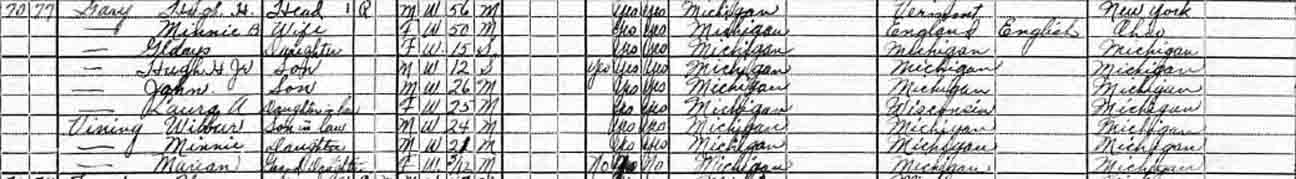 70 77 Gary Hugh H. Head 1 R M W 56 M Yes Yes Michigan Vermont New York
— Minnie B Wife F W 50 M Yes Yes Michigan England English Ohio
— Gladys Daughter F W 15 S Yes Yes Michigan Michigan Michigan
— Hugh H Jr Son M W 12 S Yes Yes Yes Michigan Michigan Michigan
— John Son M W 26 M Yes Yes Michigan Michigan Michigan
— Laura A Daughter in law F W 25 M Yes Yes Michigan Wisconsin Michigan
Vining Wilbur Son in law M W 24 M Yes Yes Michigan Michigan Michigan
— Minnie Daughter M W 21 M Yes Yes Michigan Michigan Michigan
— Marian Grand Daughter F W /12 M No No Michigan Michigan Michigan